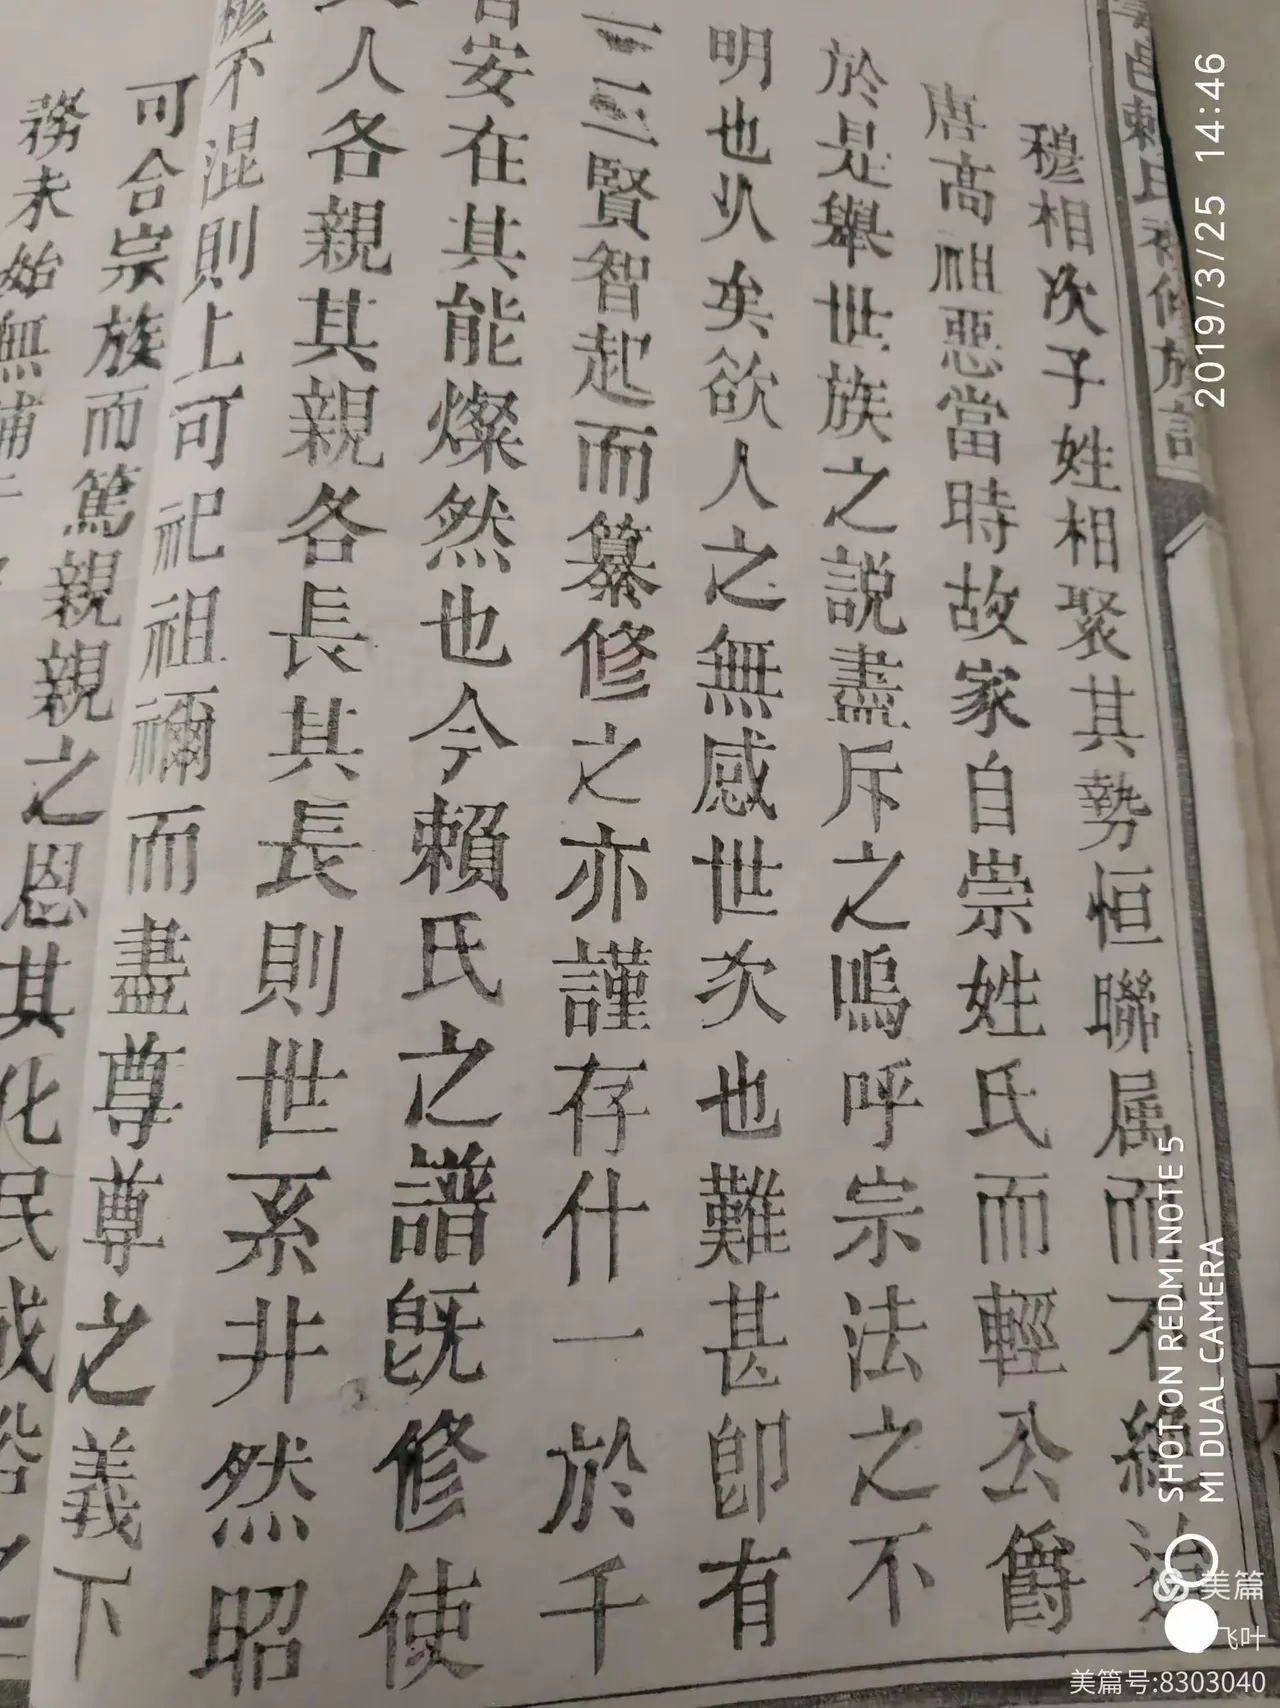 邑賴氏
穆相次子姓相聚其勢恒聯属而不絕
唐高祖惡當時故家自崇姓氏而輕公爵
於是舉世族之説盡斥之嗚呼宗法之不
明也乆矣欲人之無感世次也難甚即有
一二三賢智起而纂修之亦謹存什一於千
安在其能燦然也今賴氏之譜既修使
人各親其親各長其長則世系井然昭
穆不混則上可祀祖禰而盡尊尊之義下
可合宗族而篤親親之恩其化民成俗之
務未始無補
2019/3/25 14:46
SHOT ON REDMI NOTE 5
MI DUAL CAMERA
美篇
飞叶
美篇号:8303040